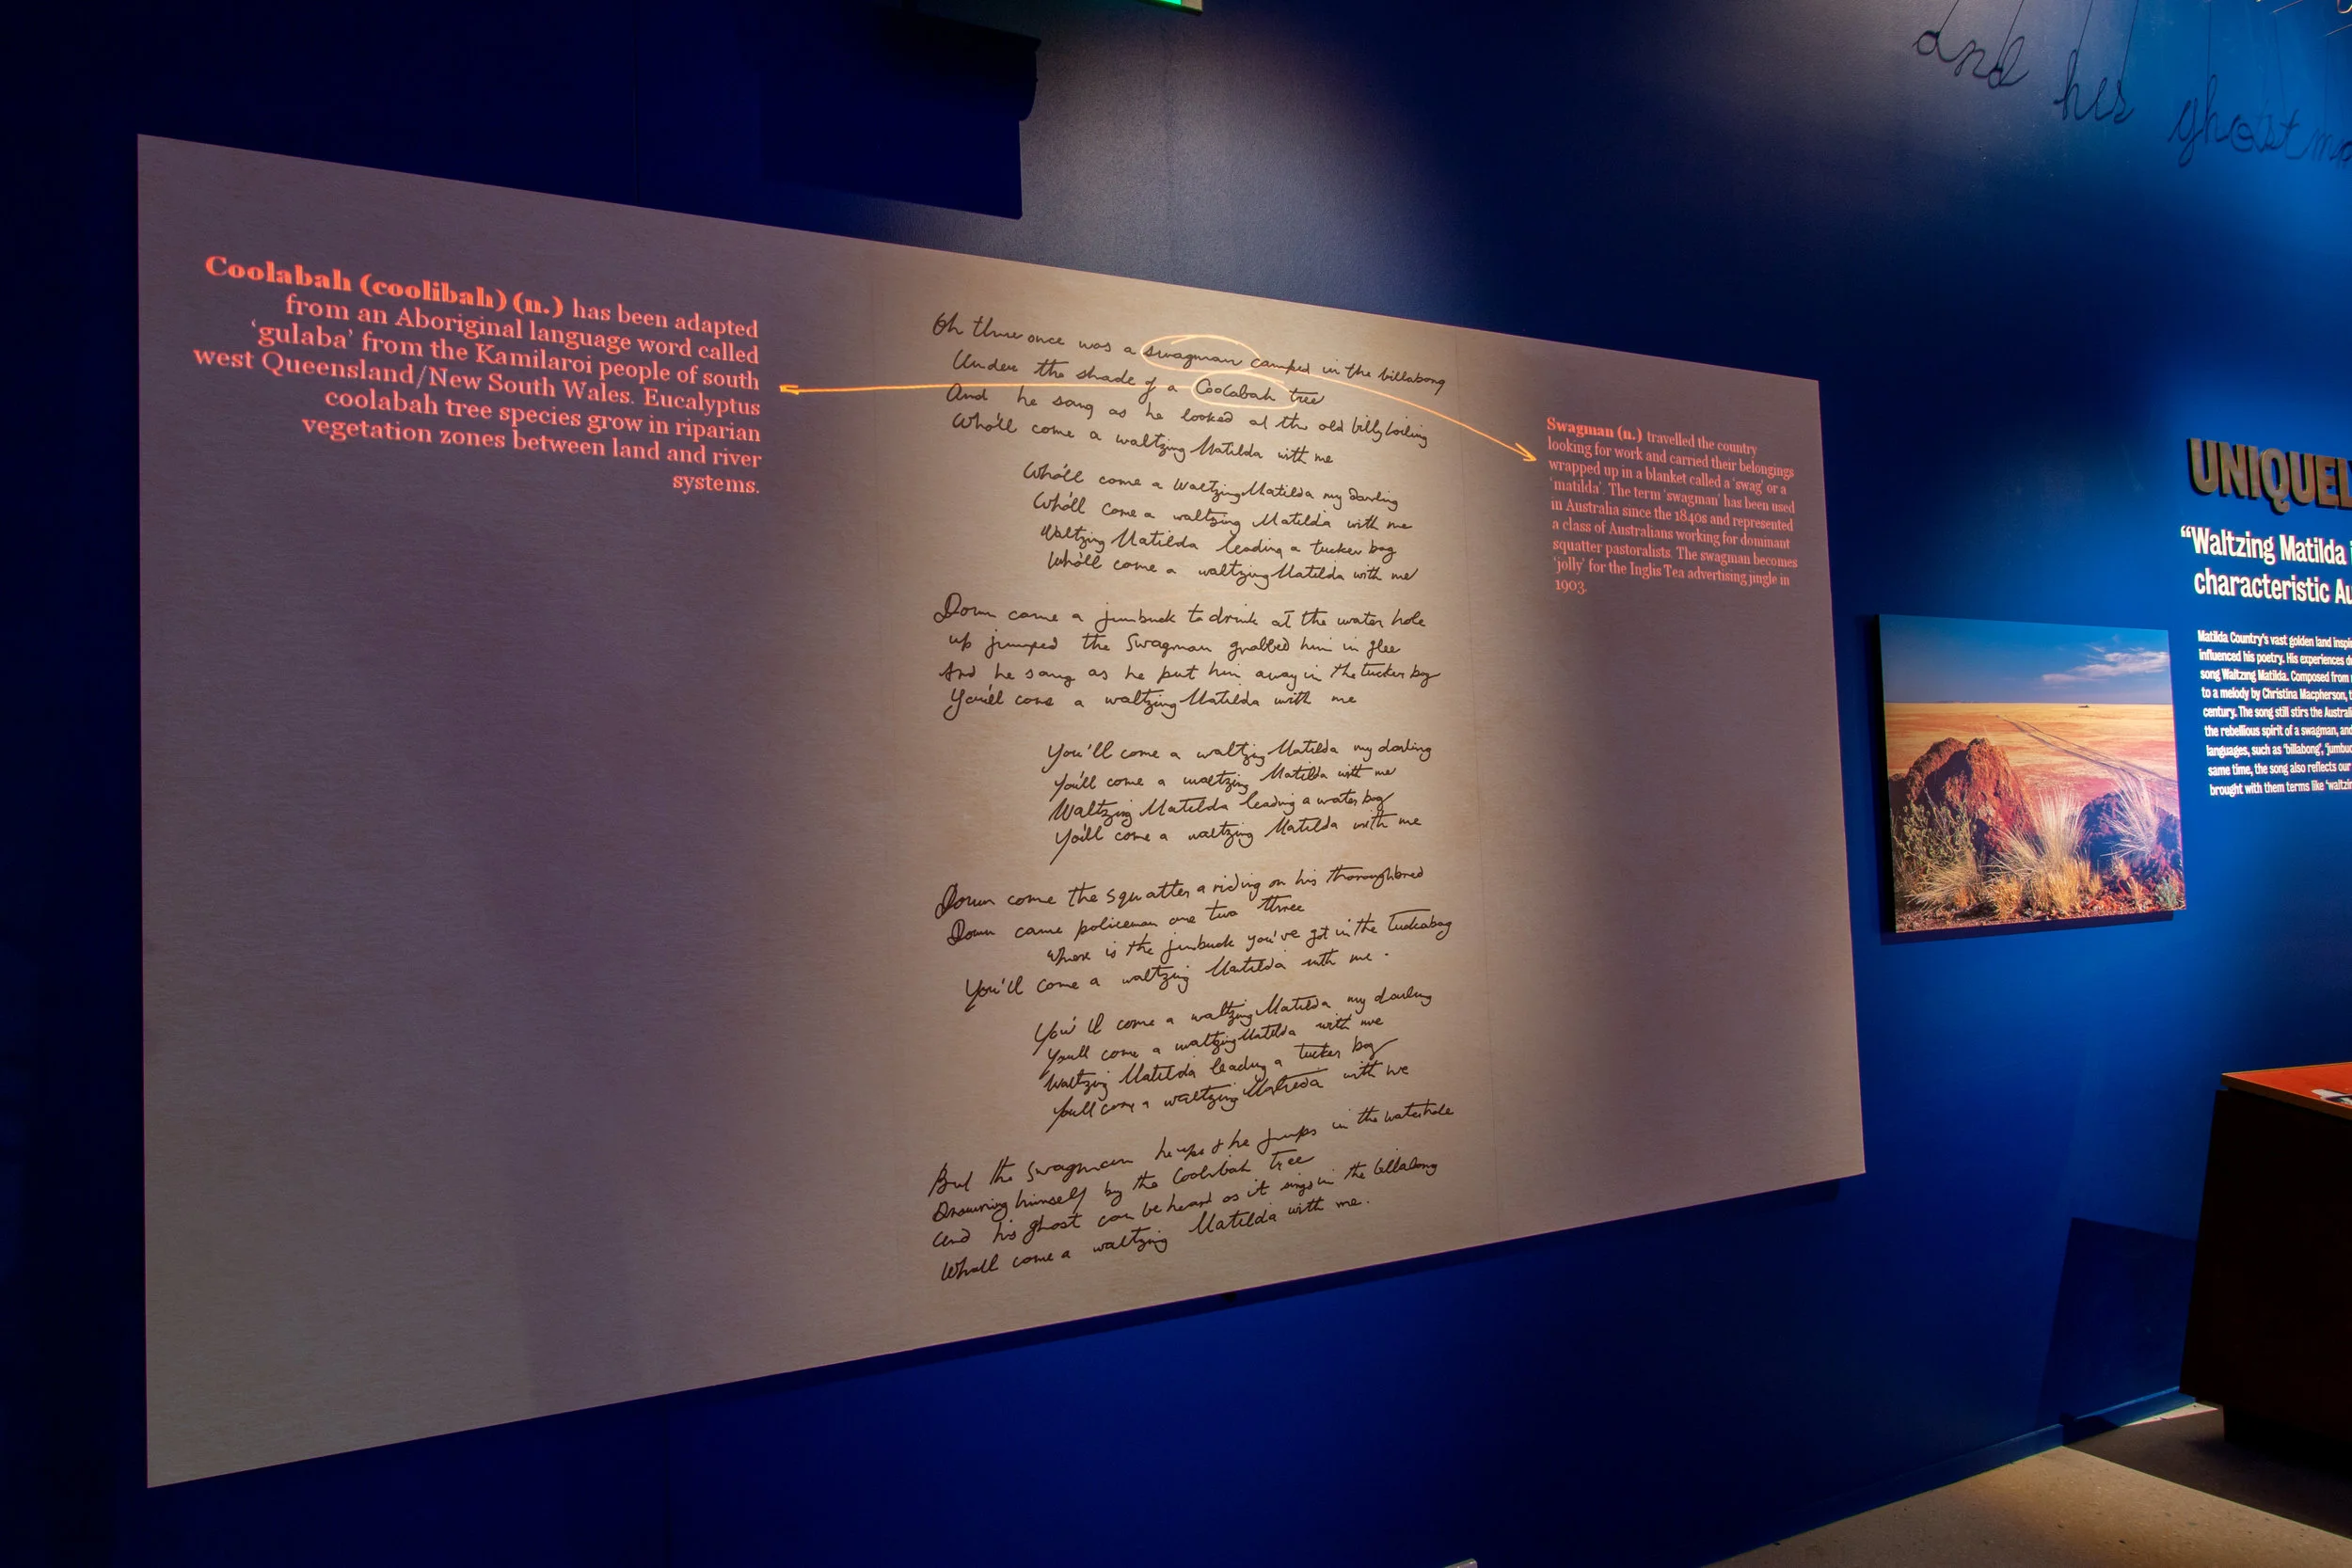 and his ghost
Coolabah (coolibah) (n.) has been adapted
from an Aboriginal language word called
‘gulaba’ from the Kamilaroi people of south
west Queensland/New South Wales. Eucalyptus
coolabah tree species grow in riparian
vegetation zones between land and river
systems.
Oh there once was a swagman camped in the billabong
Under the shade of a Coolabah tree
And he sang as he looked at the old billy boiling
Who'll come a waltzing Matilda with me
Who'll come a Waltzing Matilda my darling
Who'll come a waltzing Matilda with me
Waltzing Matilda leading a tucker bag
Who'll come a waltzing Matilda with me
Down came a jumbuck to drink at the water hole
up jumped the Swagman grabbed him in glee
And he sang as he put him away in the tucker bag
You'll come a waltzing Matilda with me
You'll come a waltzing Matilda my darling
You'll come a waltzing Matilda with me
Waltzing Matilda leading a water bag
You'll come a waltzing Matilda with me
Down come the Squatter a riding on his thoroughbred
Down came policeman one two three
Where is the jumbuck you've got in the Tuckabag
You'll come a waltzing Matilda with me.
You'll come a waltzing Matilda my darling
You'll come a waltzing Matilda with me
Waltzing Matilda leading a tucker bag
You'll come a waltzing Matilda with me
But the Swagman he ups & he jumps in the waterhole
Drowning himself by the Coolibah Tree
and his ghost can be heard as it sings in the billabong
Who'll come a waltzing Matilda with me.
Swagman (n.) travelled the country
looking for work and carried their belongings
wrapped up in a blanket called a ‘swag’ or a
‘matilda’. The term ‘swagman’ has been used
in Australia since the 1840s and represented
a class of Australians working for dominant
squatter pastoralists. The swagman becomes
‘jolly’ for the Inglis Tea advertising jingle in
1903.
UNIQUEL
“Waltzing Matilda
characteristic Au
Matilda Country's vast golden land inspi
influenced his poetry. His experiences d
song Waltzing Matilda. Composed from
to a melody by Christina Macpherson, t
century. The song still stirs the Australi
the rebellious spirit of a swagman, and
languages, such as ‘billabong’, ‘jumbuc
same time, the song also reflects our
brought with them terms like ‘waltzin